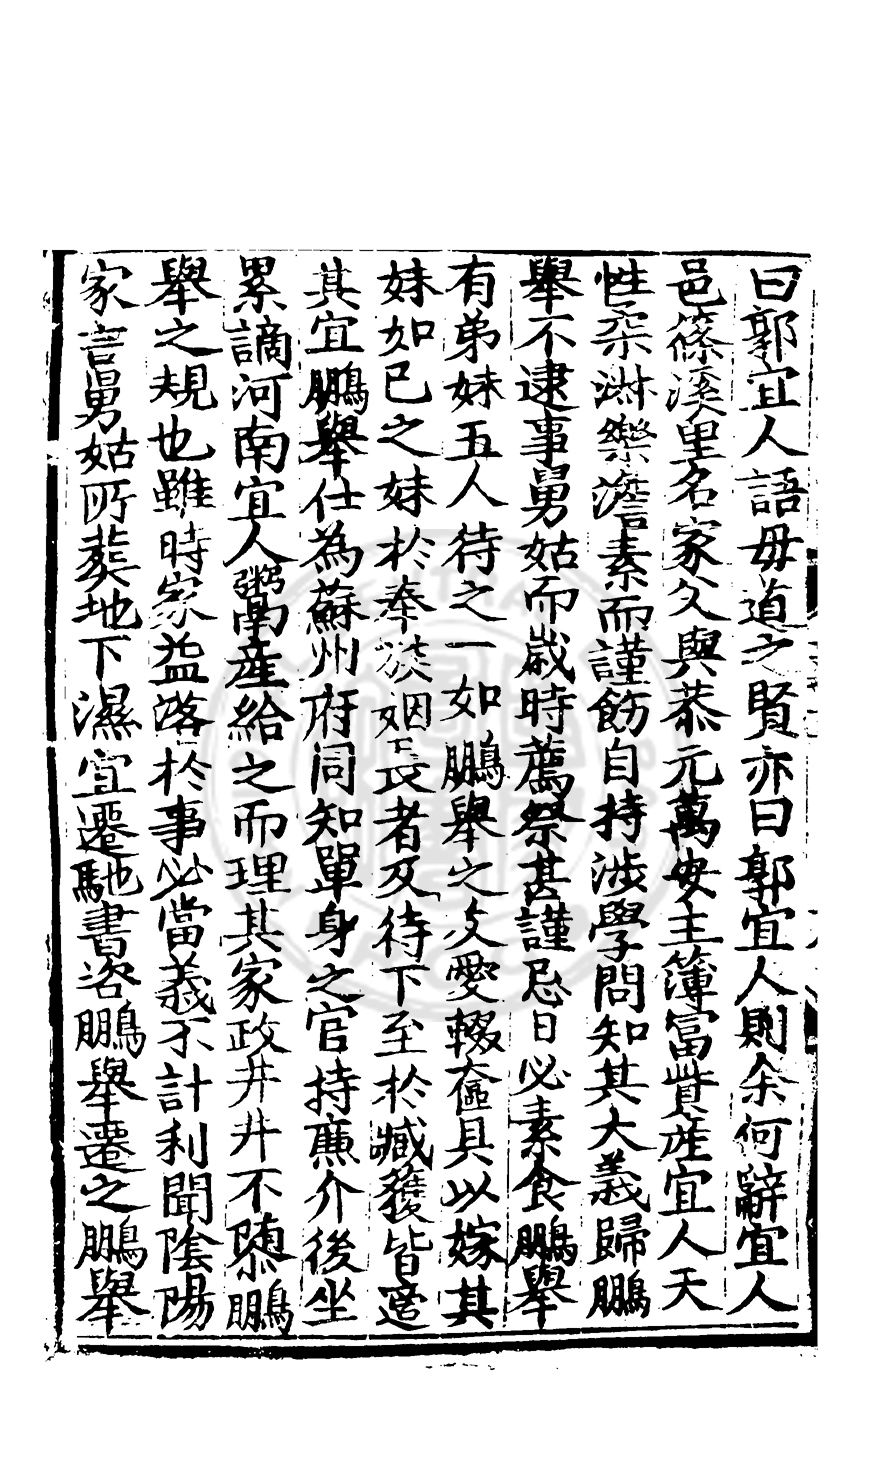 曰郭宜人語母道之賢亦曰郭宜人則余何辭宜人
邑篠溪里名家父與恭元萬安主簿富貲産宜人天
性柔淋樂澹素而謹飭自持涉學問知其大義歸鵬
舉不逮事舅姑而歲時薦祭甚謹忌日必素食鵬舉
有弟妹五人待之一如鵬舉之友愛輟奩具以嫁其
妹如已之妹於奉族姻長者及待下至於臧獲皆適
其宜鵬舉仕為蘇州府同知單身之官持廉介後坐
累謫河南宜人鬻産給之而理其家政井井不隳鵬
舉之規也雖時家益落於事必當義不計利聞陰陽
家言舅姑所葬地下濕宜遷馳書咨鵬舉遷之鵬舉